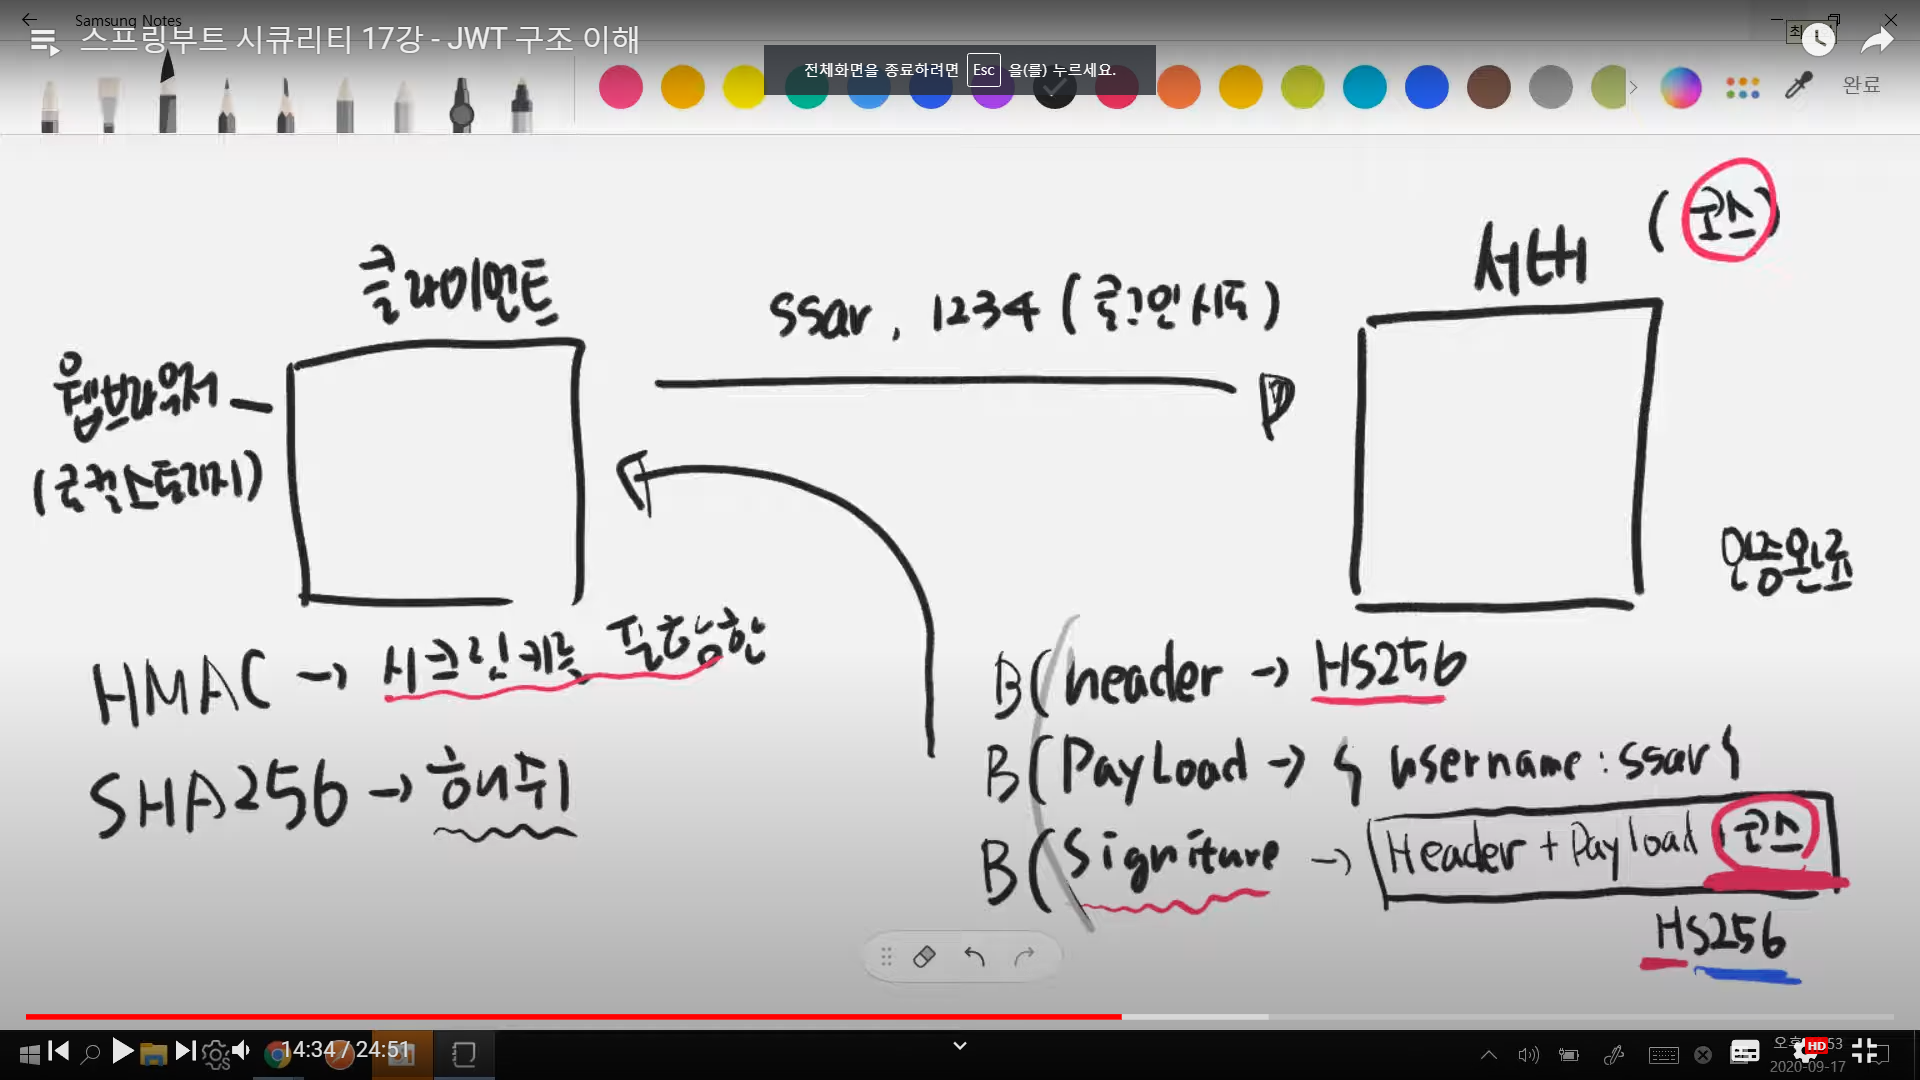 Samsung Notes
스프링부트 시큐리티 17강 - JWT 구조 이해
전체화면을 종료하려면 Esc 을(를) 누르세요.
완료
(코스)
클라이언트
서버
ssar, 1234 (로그인시도)
웹브라우저
(로컬스토리지)
인증완료
HMAC → 시크릿키를 포함한
SHA256 → 해쉬
B(header → HS256
B(PayLoad → { username : ssar}
B(Signiture → Header + Payload + 코스
HS256
14:34 / 24:51
HD
2020-09-17